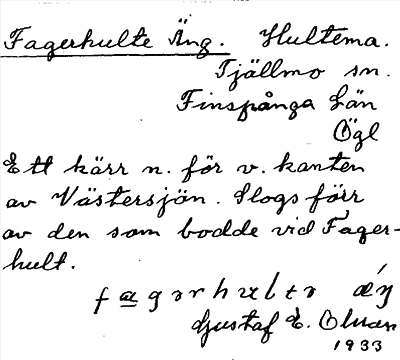 Fagerhulte Äng. Hultema.
Tjällmo sn.
Finspånga Län
Ögl
Ett kärr n. för v. kanten
av Västersjön. Slogs förr
av den som bodde vid Fager-
hult.
Gustaf E. Olman
1933